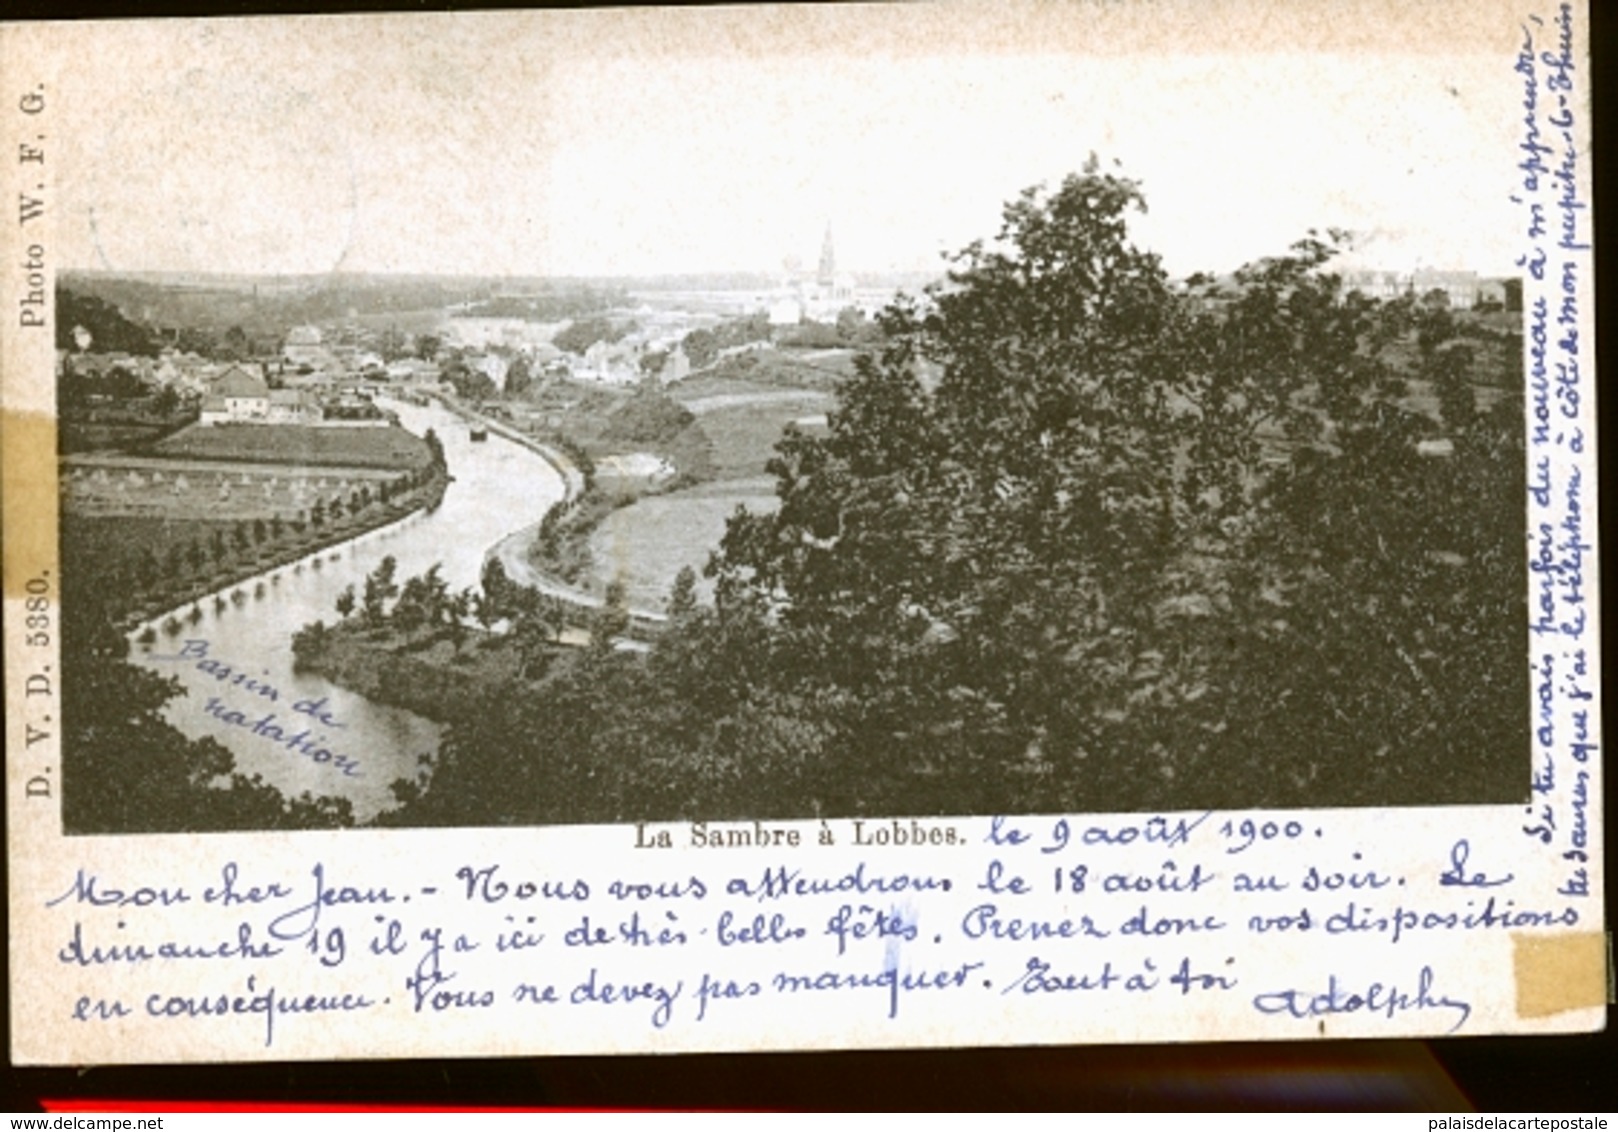 Photo W. F. G.
D. V. D. 5380.
Bassin de
natation
La Sambre à Lobbes. le 9 août 1900.
Mon cher Jean. - Nous vous attendrons le 18 août au soir. Le
dimanche 19 il y a ici de très belles fêtes. Prenez donc vos dispositions
en conséquence. Vous ne devez pas manquer. Tout à toi
Adolphe
Si tu avais parfois du nouveau à m'apprendre,
tu sauras que j'ai le téléphone à côté de mon pupitre. 6-Thuin
www.delcampe.net
palaisdelacartepostale